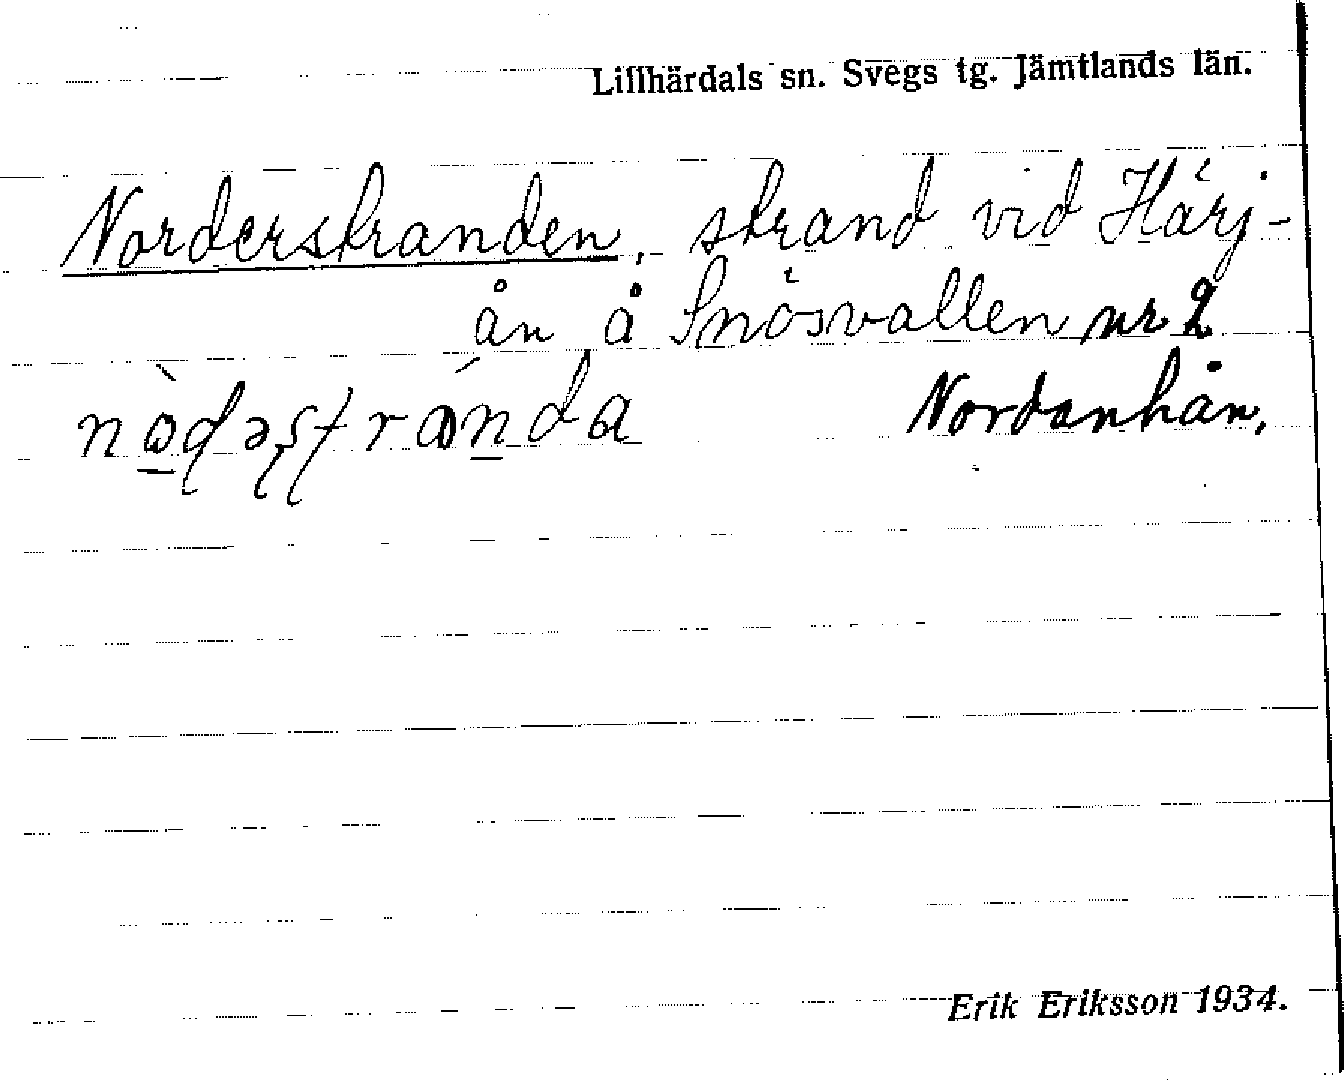 Lillhärdals sn. Svegs tg. Jämtlands län.
Norderstranden, strand vid Härj-
ån å Snösvallen nr 2
Nordanhån.
Erik Eriksson 1934.